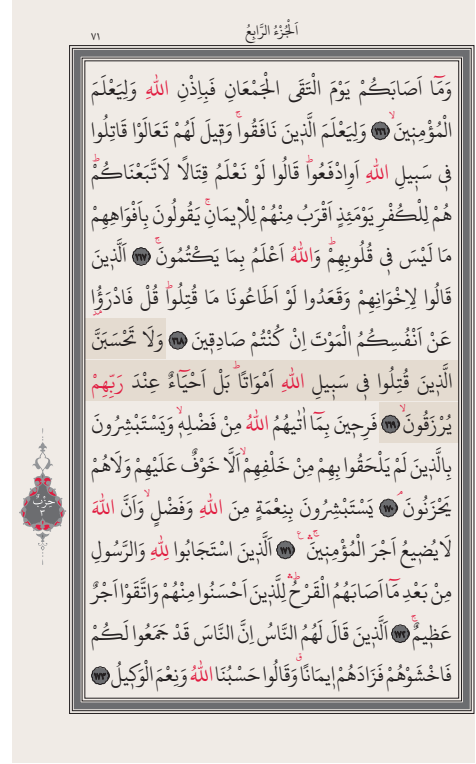 اَلْجُزْءُ الرَّابِعُ
٧١
وَمَٓا اَصَابَكُمْ يَوْمَ الْتَقَى الْجَمْعَانِ فَبِاِذْنِ اللهِ وَلِيَعْلَمَ
الْمُؤْمِن۪ينَۙ ﴿١٦٦﴾ وَلِيَعْلَمَ الَّذ۪ينَ نَافَقُواۚ وَق۪يلَ لَهُمْ تَعَالَوْا قَاتِلُوا
ف۪ي سَب۪يلِ اللهِ اَوِادْفَعُواۜ قَالُوا لَوْ نَعْلَمُ قِتَالًا لَاتَّبَعْنَاكُمْۜ
هُمْ لِلْكُفْرِ يَوْمَئِذٍ اَقْرَبُ مِنْهُمْ لِلْا۪يمَانِۚ يَقُولُونَ بِاَفْوَاهِهِمْ
مَا لَيْسَ ف۪ي قُلُوبِهِمْۜ وَاللهُ اَعْلَمُ بِمَا يَكْتُمُونَۚ ﴿١٦٧﴾ اَلَّذ۪ينَ
قَالُوا لِاِخْوَانِهِمْ وَقَعَدُوا لَوْ اَطَاعُونَا مَا قُتِلُواۜ قُلْ فَادْرَؤُ۫ا
عَنْ اَنْفُسِكُمُ الْمَوْتَ اِنْ كُنْتُمْ صَادِق۪ينَ ﴿١٦٨﴾ وَلَا تَحْسَبَنَّ
الَّذ۪ينَ قُتِلُوا ف۪ي سَب۪يلِ اللهِ اَمْوَاتًاۜ بَلْ اَحْيَٓاءٌ عِنْدَ رَبِّهِمْ
يُرْزَقُونَۙ ﴿١٦٩﴾ فَرِح۪ينَ بِمَٓا اٰتٰيهُمُ اللهُ مِنْ فَضْلِه۪ۙ وَيَسْتَبْشِرُونَ
بِالَّذ۪ينَ لَمْ يَلْحَقُوا بِهِمْ مِنْ خَلْفِهِمْۙ اَلَّا خَوْفٌ عَلَيْهِمْ وَلَاهُمْ
يَحْزَنُونَۢ ﴿١٧٠﴾ يَسْتَبْشِرُونَ بِنِعْمَةٍ مِنَ اللهِ وَفَضْلٍۙ وَاَنَّ اللهَ
لَايُض۪يعُ اَجْرَ الْمُؤْمِن۪ينَۚۛ ﴿١٧١﴾ اَلَّذ۪ينَ اسْتَجَابُوا لِلهِ وَالرَّسُولِ
مِنْ بَعْدِ مَٓا اَصَابَهُمُ الْقَرْحُۜۛ لِلَّذ۪ينَ اَحْسَنُوا مِنْهُمْ وَاتَّقَوْا اَجْرٌ
عَظ۪يمٌۚ ﴿١٧٢﴾ اَلَّذ۪ينَ قَالَ لَهُمُ النَّاسُ اِنَّ النَّاسَ قَدْ جَمَعُوا لَكُمْ
فَاخْشَوْهُمْ فَزَادَهُمْ ا۪يمَانًاۗ وَقَالُوا حَسْبُنَا اللهُ وَنِعْمَ الْوَك۪يلُ ﴿١٧٣﴾
حِزْب